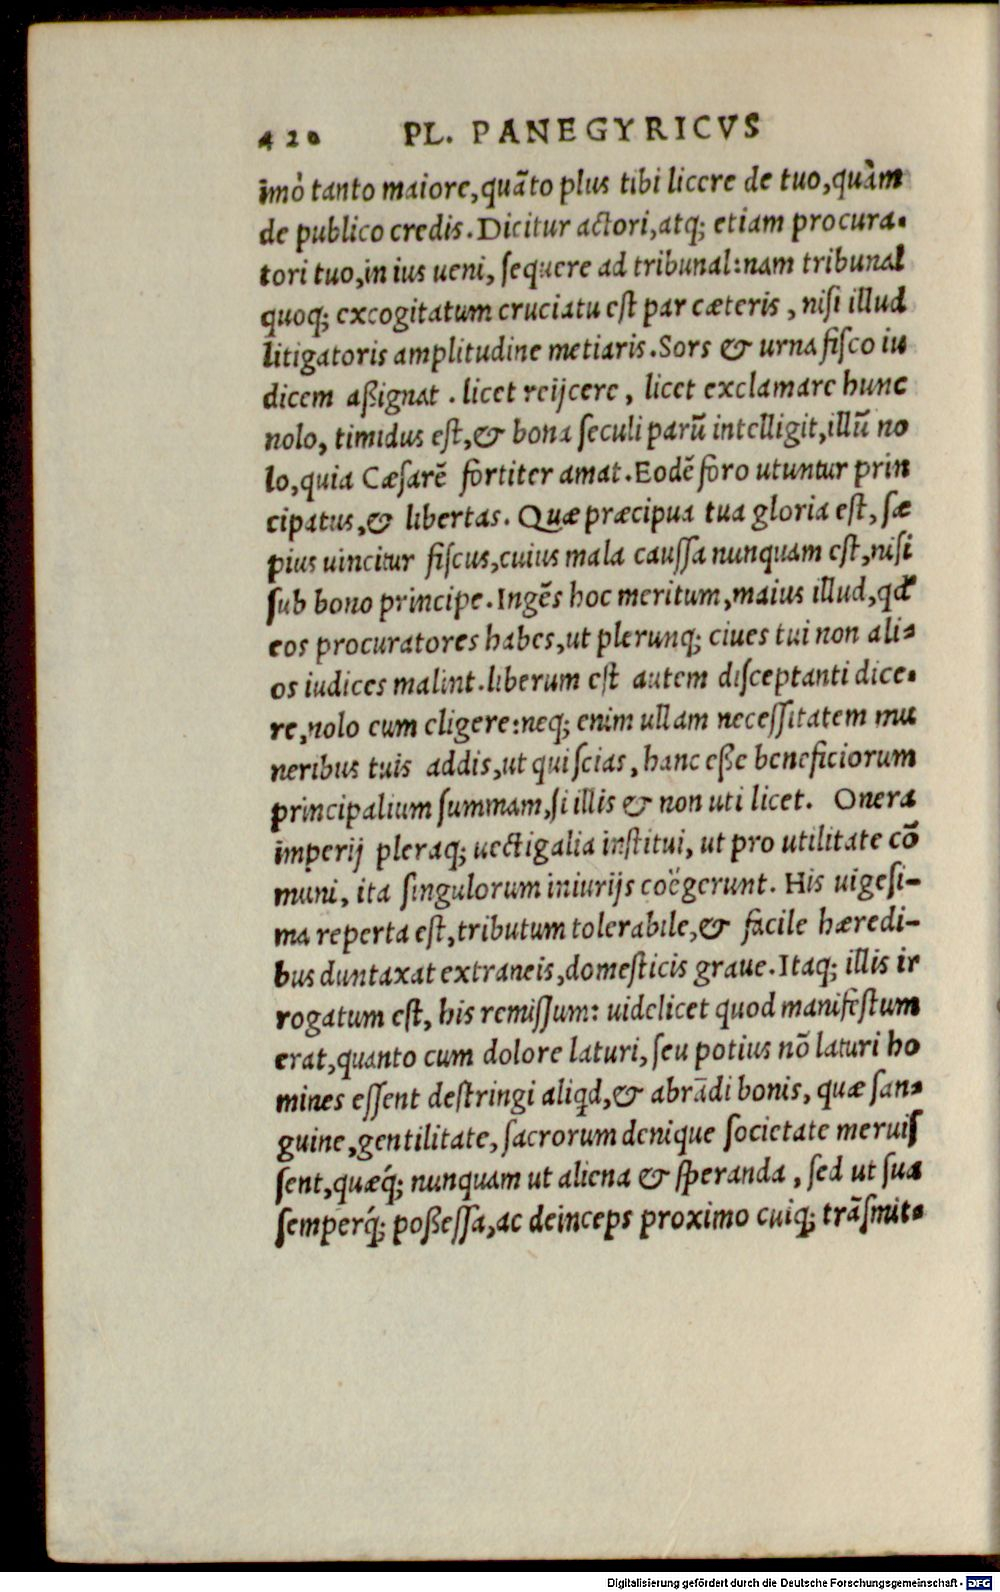 420 PL. PANEGYRICVS
imò tanto maiore, quãto plus tibi licere de tuo, quàm
de publico credis. Dicitur actori, atq; etiam procura-
tori tuo, in ius ueni, ſequere ad tribunal: nam tribunal
quoq; excogitatum cruciatu eſt par cæteris, niſi illud
litigatoris amplitudine metiaris. Sors & urna fiſco iu
dicem aßignat. licet reijcere, licet exclamare hunc
nolo, timidus eſt, & bona ſeculi parũ intelligit, illũ no
lo, quia Cæſarẽ fortiter amat. Eodẽ foro utuntur prin
cipatus, & libertas. Quæ præcipua tua gloria eſt, ſæ
pius uincitur fiſcus, cuius mala cauſſa nunquam eſt, niſi
ſub bono principe. Ingẽs hoc meritum, maius illud, qď
eos procuratores habes, ut plerunq; ciues tui non ali-
os iudices malint. liberum eſt autem diſceptanti dice-
re, nolo eum eligere: neq; enim ullam neceſſitatem mu
neribus tuis addis, ut qui ſcias, hanc eße beneficiorum
principalium ſummam, ſi illis & non uti licet. Onera
imperij pleraq; uectigalia inſtitui, ut pro utilitate cõ
muni, ita ſingulorum iniurijs coëgerunt. His uigeſi-
ma reperta eſt, tributum tolerabile, & facile hæredi-
bus duntaxat extraneis, domeſticis graue. Itaq; illis ir
rogatum eſt, his remiſſum: uidelicet quod manifeſtum
erat, quanto cum dolore laturi, ſeu potius nõ laturi ho
mines eſſent deſtringi aliqd, & abrãdi bonis, quæ ſan-
guine, gentilitate, ſacrorum denique ſocietate meruiſ
ſent, quæq́; nunquam ut aliena & ſperanda, ſed ut ſua
ſemperq́; poßeſſa, ac deinceps proximo cuiq; trãſmit-
Digitalisierung gefördert durch die Deutsche Forschungsgemeinschaft - DFG